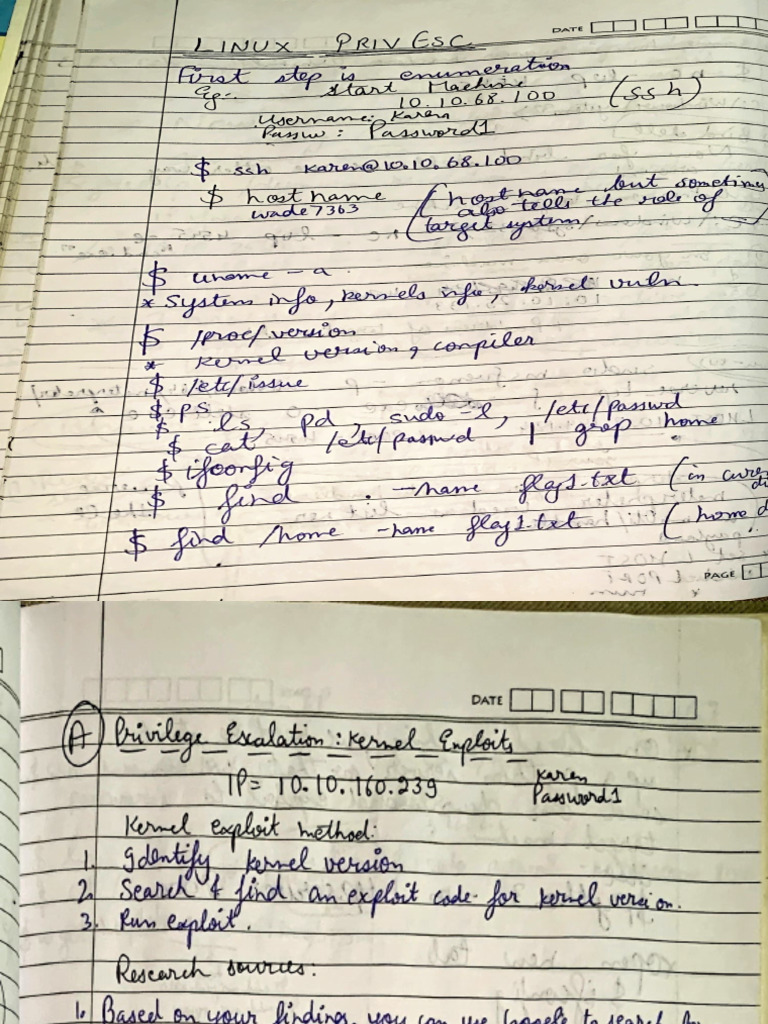 DATE
LINUX PRIV ESC
First step is enumeration
Eg:- Start Machine
10.10.68.100 (ssh)
Username: Karen
Passw: Password1
$ ssh karen@10.10.68.100
$ hostname (hostname but sometimes
wade7363 also tells the role of
target system)
$ uname -a
* System info, kernels info, kernel vuln.
$ /proc/version
* kernel version, compiler
$ /etc/issue
$ ps
$ ls, pd, sudo -l, /etc/passwd
$ cat /etc/passwd | grep home
$ ifconfig
$ find . -name flag1.txt (in curr
$ find /home -name flag1.txt (home d
PAGE
DATE
A Privilege Escalation: Kernel Exploits
IP= 10.10.160.239 Karen
Password1
Kernel exploit method:
1. Identify kernel version
2. Search & find an exploit code for kernel version.
3. Run exploit.
Research sources:
1. Based on your findings, you can use Google to search